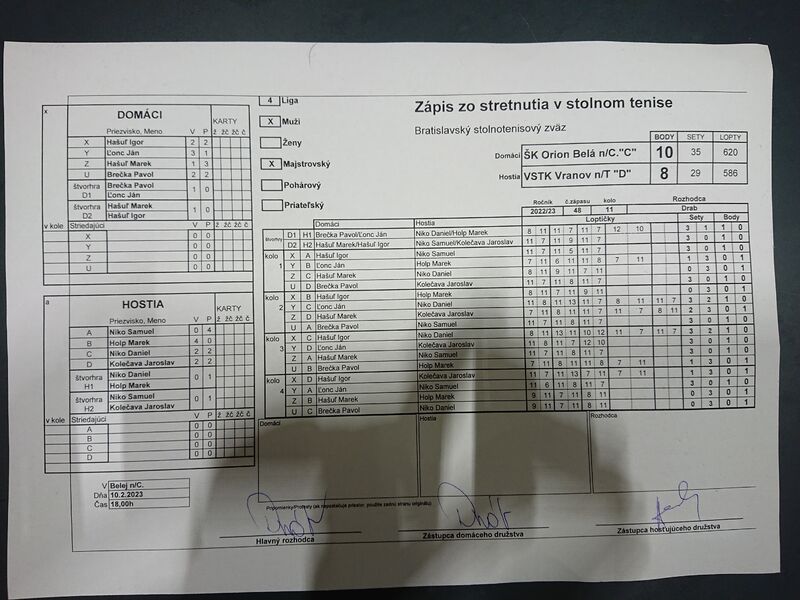 4 Liga
X Muži
Ženy
X Majstrovský
Pohárový
Priateľský
Zápis zo stretnutia v stolnom tenise
Bratislavský stolnotenisový zväz
BODY SETY LOPTY
Domáci ŠK Orion Belá n/C."C" 10 35 620
Hostia VSTK Vranov n/T "D" 8 29 586
Ročník č.zápasu kolo Rozhodca
2022/23 48 11 Drab
x
DOMÁCI
Priezvisko, Meno V P KARTY
ž žč žč č
X Hašuľ Igor 2 2
Y Ľonc Ján 3 1
Z Hašuľ Marek 1 3
U Brečka Pavol 2 2
štvorhra D1 Brečka Pavol 1 0
Ľonc Ján
štvorhra D2 Hašuľ Marek 1 0
Hašuľ Igor
v kole Striedajúci V P ž žč žč č
X 0 0
Y 0 0
Z 0 0
U 0 0
a
HOSTIA
Priezvisko, Meno V P KARTY
ž žč žč č
A Niko Samuel 0 4
B Holp Marek 4 0
C Niko Daniel 2 2
D Kolečava Jaroslav 2 2
štvorhra H1 Niko Daniel 0 1
Holp Marek
štvorhra H2 Niko Samuel 0 1
Kolečava Jaroslav
v kole Striedajúci V P ž žč žč č
A 0 0
B 0 0
C 0 0
D 0 0
V Belej n/C.
Dňa 10.2.2023
Čas 18,00h
Domáci Hostia Loptičky Sety Body
štvorhry D1 H1 Brečka Pavol/Ľonc Ján Niko Daniel/Holp Marek 8 11 11 7 11 7 12 10 3 1 1 0
D2 H2 Hašuľ Marek/Hašuľ Igor Niko Samuel/Kolečava Jaroslav 11 7 11 9 11 7 3 0 1 0
kolo 1 X A Hašuľ Igor Niko Samuel 11 7 11 5 11 7 3 0 1 0
Y B Ľonc Ján Holp Marek 7 11 6 11 11 8 7 11 1 3 0 1
Z C Hašuľ Marek Niko Daniel 0 3 0 1
U D Brečka Pavol Kolečava Jaroslav 3 0 1 0
kolo 2 X B Hašuľ Igor Holp Marek 0 3 0 1
Y C Ľonc Ján Niko Daniel 11 8 11 13 11 7 8 11 11 7 3 2 1 0
Z D Hašuľ Marek Kolečava Jaroslav 2 3 0 1
U A Brečka Pavol Niko Samuel 3 0 1 0
kolo 3 X C Hašuľ Igor Niko Daniel
Y D Ľonc Ján Kolečava Jaroslav 3 0 1 0
Z A Hašuľ Marek Niko Samuel 3 0 1 0
U B Brečka Pavol Holp Marek 1 3 0 1
kolo 4 X D Hašuľ Igor Kolečava Jaroslav 0 3 0 1
Y A Ľonc Ján Niko Samuel 11 6 11 8 11 7 3 0 1 0
Z B Hašuľ Marek Holp Marek 9 11 7 11 8 11 0 3 0 1
U C Brečka Pavol Niko Daniel 9 11 7 11 8 11 0 3 0 1
Domáci Hostia Rozhodca
Pripomienky/Protesty (ak nepostačuje priestor, použite zadnú stranu originálu)
Hlavný rozhodca
Zástupca domáceho družstva
Zástupca hosťujúceho družstva